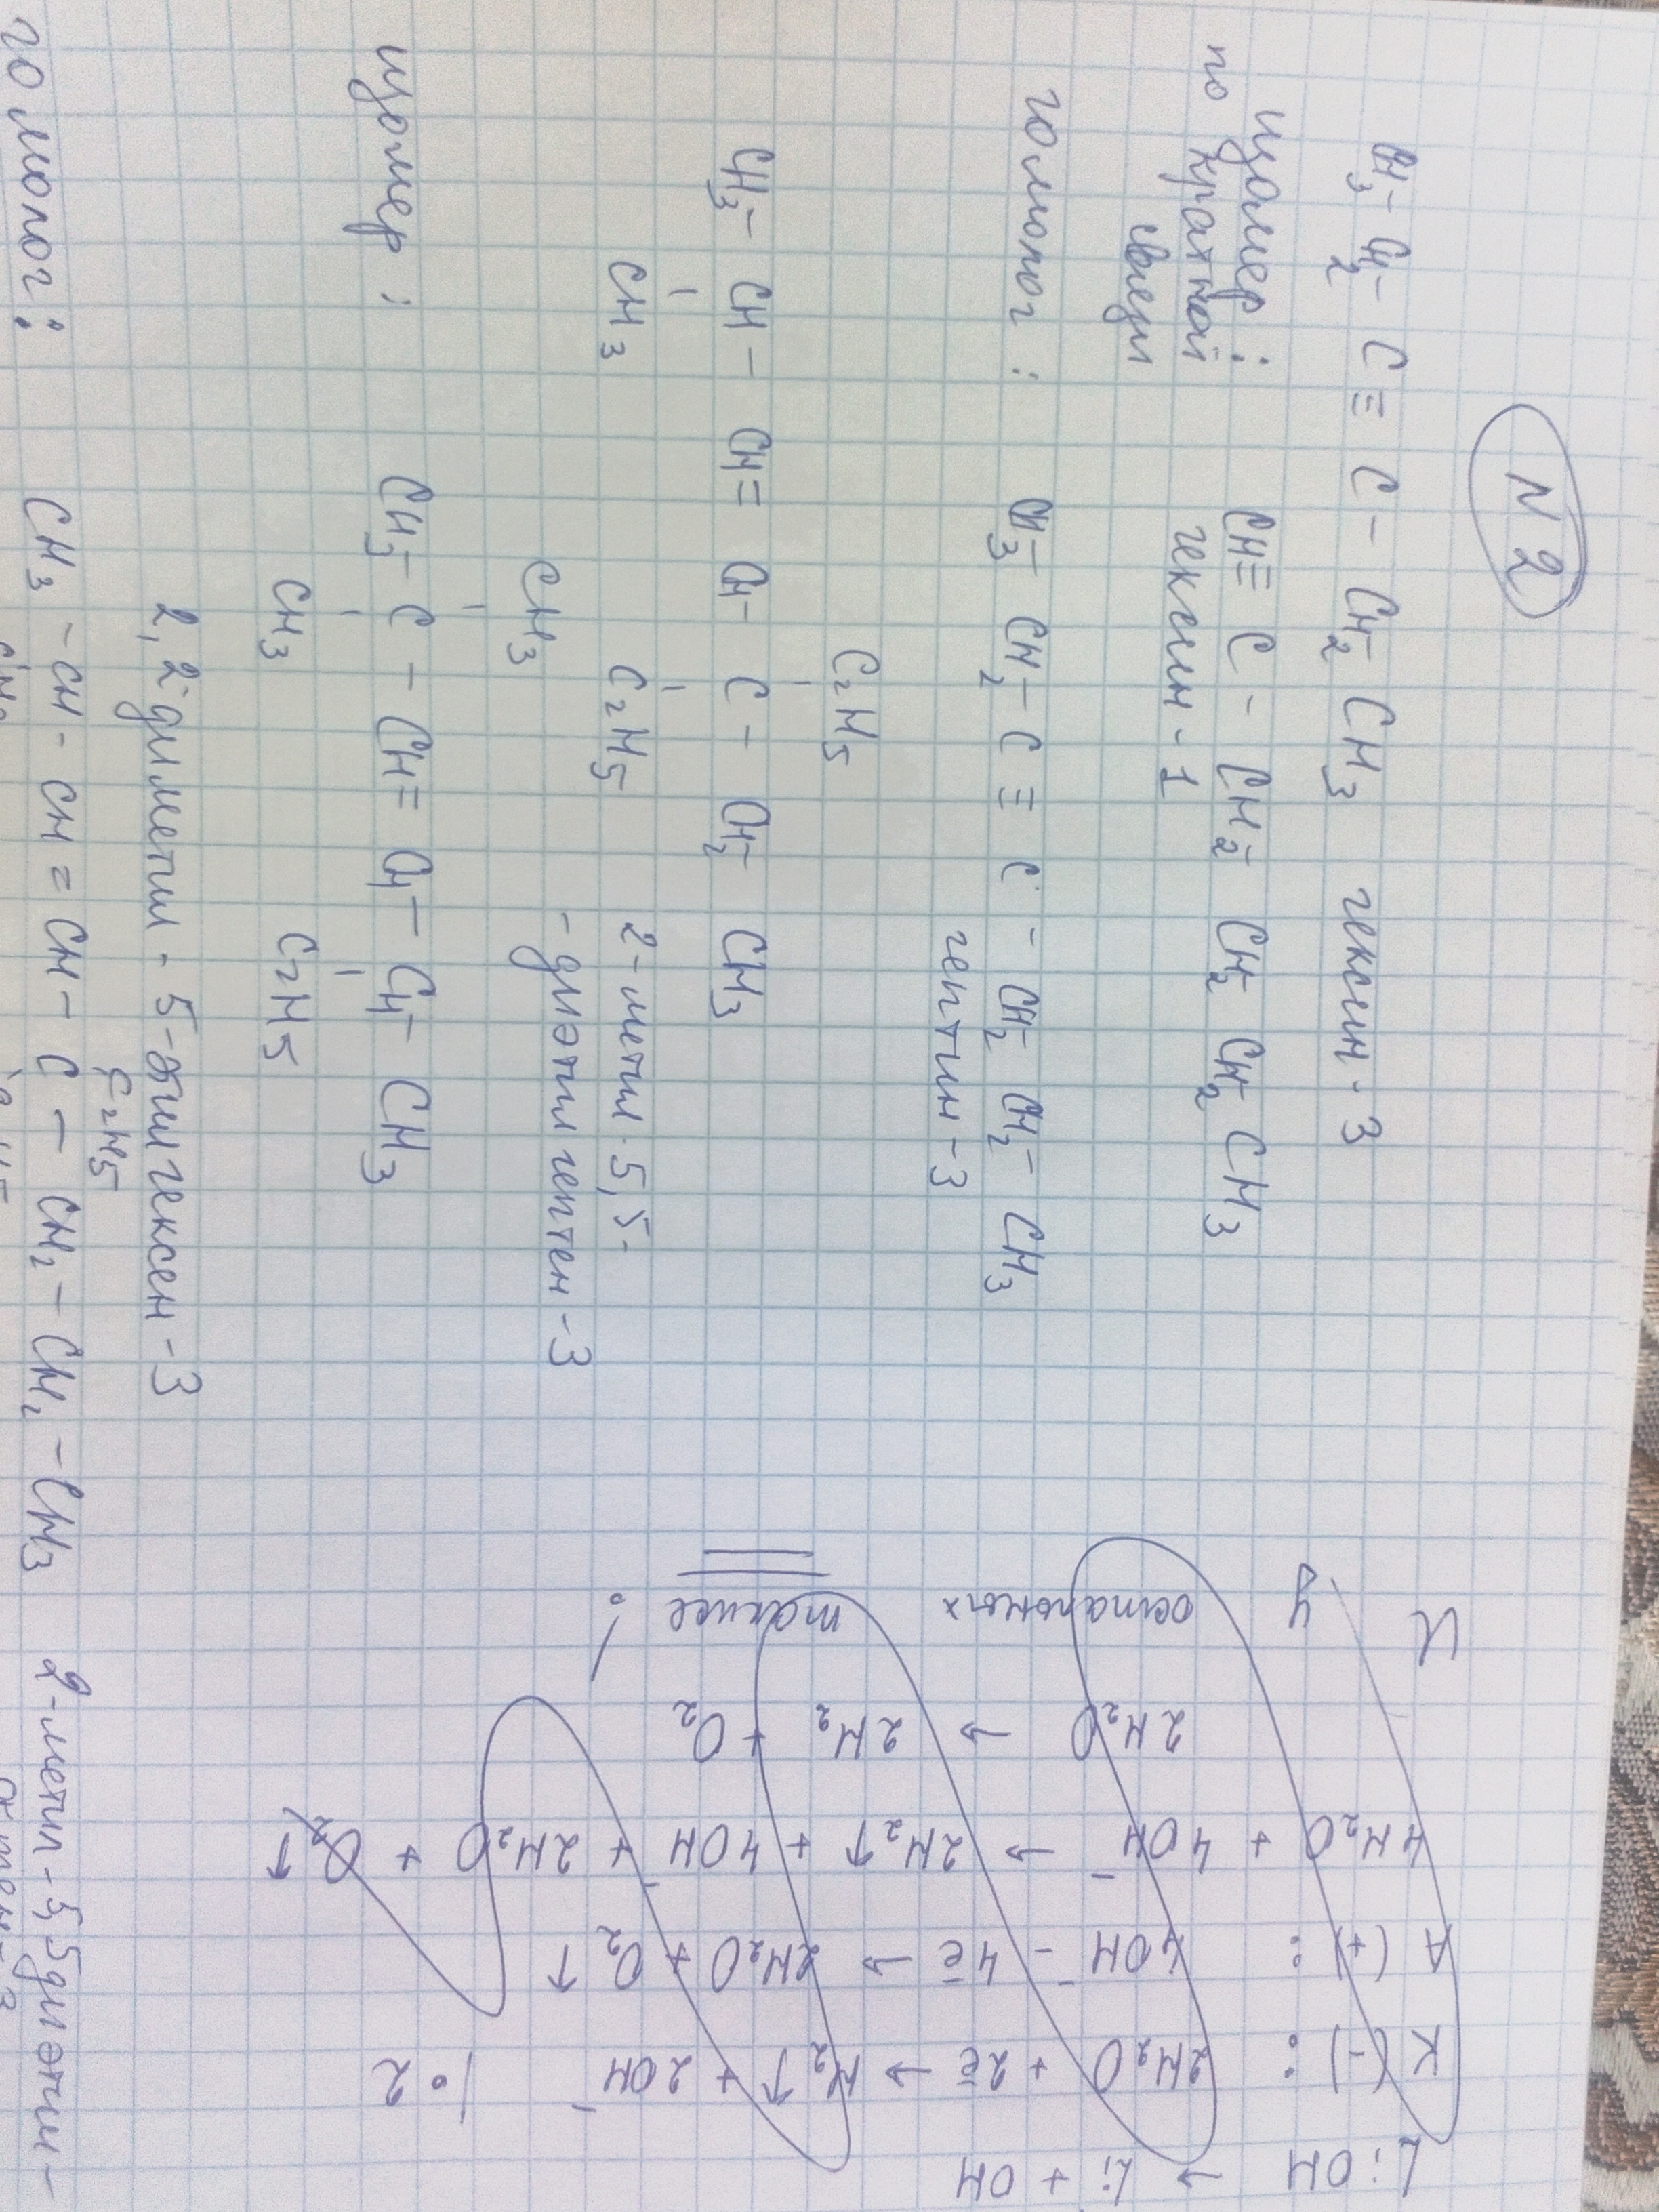 N2
CH3 - CH2 - C ≡ C - CH2 - CH3 гексин - 3
изомер :
по кратной
связи
CH ≡ C - CH2 - CH2 - CH2 CH3
гексин - 1
гомолог :
CH3 - CH2 - C ≡ C - CH2 - CH2 - CH3
гептин - 3
C2H5
CH3 - CH - CH = CH - C - CH2 - CH3
CH3
C2H5
2 - метил - 5,5 -
- диэтил гептен - 3
изомер :
CH3
CH3 - C - CH = CH - CH - CH3
CH3
C2H5
2, 2 - диметил - 5 - этил гексен - 3
C2H5
гомолог :
CH3 - CH - CH = CH - C - CH2 - CH2 - CH3
2 - метил - 5,5 диэтил -
LiOH → Li + OH
K (-) : 2H2O + 2e → H2↑ + 2OH - | · 2
A (+) : 4OH - - 4e → 2H2O + O2 ↑
4H2O + 4OH - → 2H2↑ + 4OH - + 2H2O + O2 ↑
2H2O → 2H2 + O2
И
у остальных такие